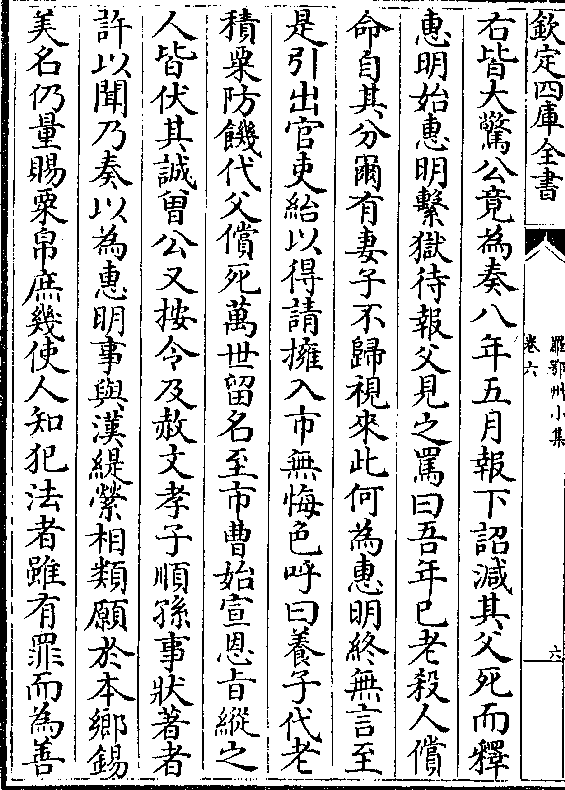 欽定四庫全書
羅鄂州小集
卷六
六
右皆大驚公竟為奏八年五月報下詔減其父死而釋
惠明始惠明繫獄待報父見之罵曰吾年已老殺人償
命自其分爾有妻子不歸視來此何為惠明終無言至
是引出官吏紿以得請擁入市無悔色呼曰養子代老
積粟防饑代父償死萬世留名至市曹始宣恩旨縱之
人皆伏其誠曽公又按令及赦文孝子順孫事狀著者
許以聞乃奏以為惠明事與漢緹縈相類願於本鄉錫
美名仍量賜粟帛庶幾使人知犯法者雖有罪而為善